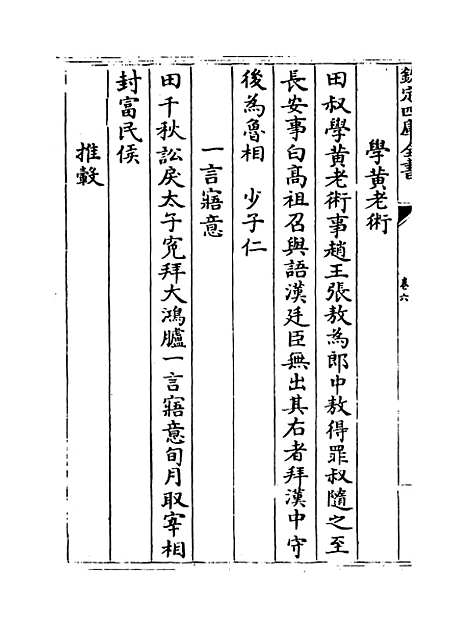 欽定四庫全書
卷六
學黃老術
田叔學黃老術事趙王張敖為郎中敖得罪叔隨之至
長安事白高祖召與語漢廷臣無出其右者拜漢中守
後為魯相 少子仁
一言寤意
田千秋訟戾太子寃拜大鴻臚一言寤意旬月取宰相
封富民侯
推轂